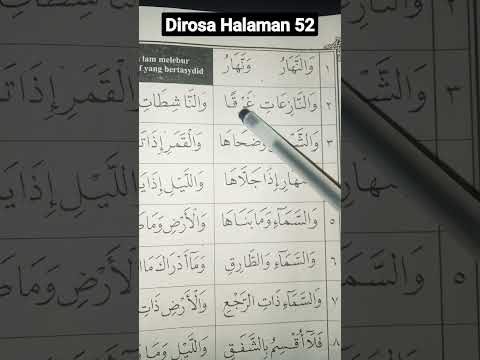 Dirosa Halaman 52
lam melebur
yang bertasydid
١ وَالنَّهَارُ وَنَهَارُ
٢ وَالنَّازِعَاتِ غَرْقًا وَالنَّاشِطَاتِ
٣ وَضُحَاهَا وَالْقَمَرِ إِذَا
إِذَا جَلَّاهَا وَاللَّيْلِ إِذَا
٥ وَالسَّمَآءِ وَمَا بَنَاهَا وَالْأَرْضِ وَمَا
٦ وَالسَّمَآءِ وَالطَّارِقِ وَمَآ أَدْرَاكَ مَا
٧ وَالسَّمَآءِ ذَاتِ الرَّجْعِ وَالْأَرْضِ ذَاتِ
٨ فَلَآ أُقْسِمُ بِالشَّفَقِ وَاللَّيْلِ وَمَا